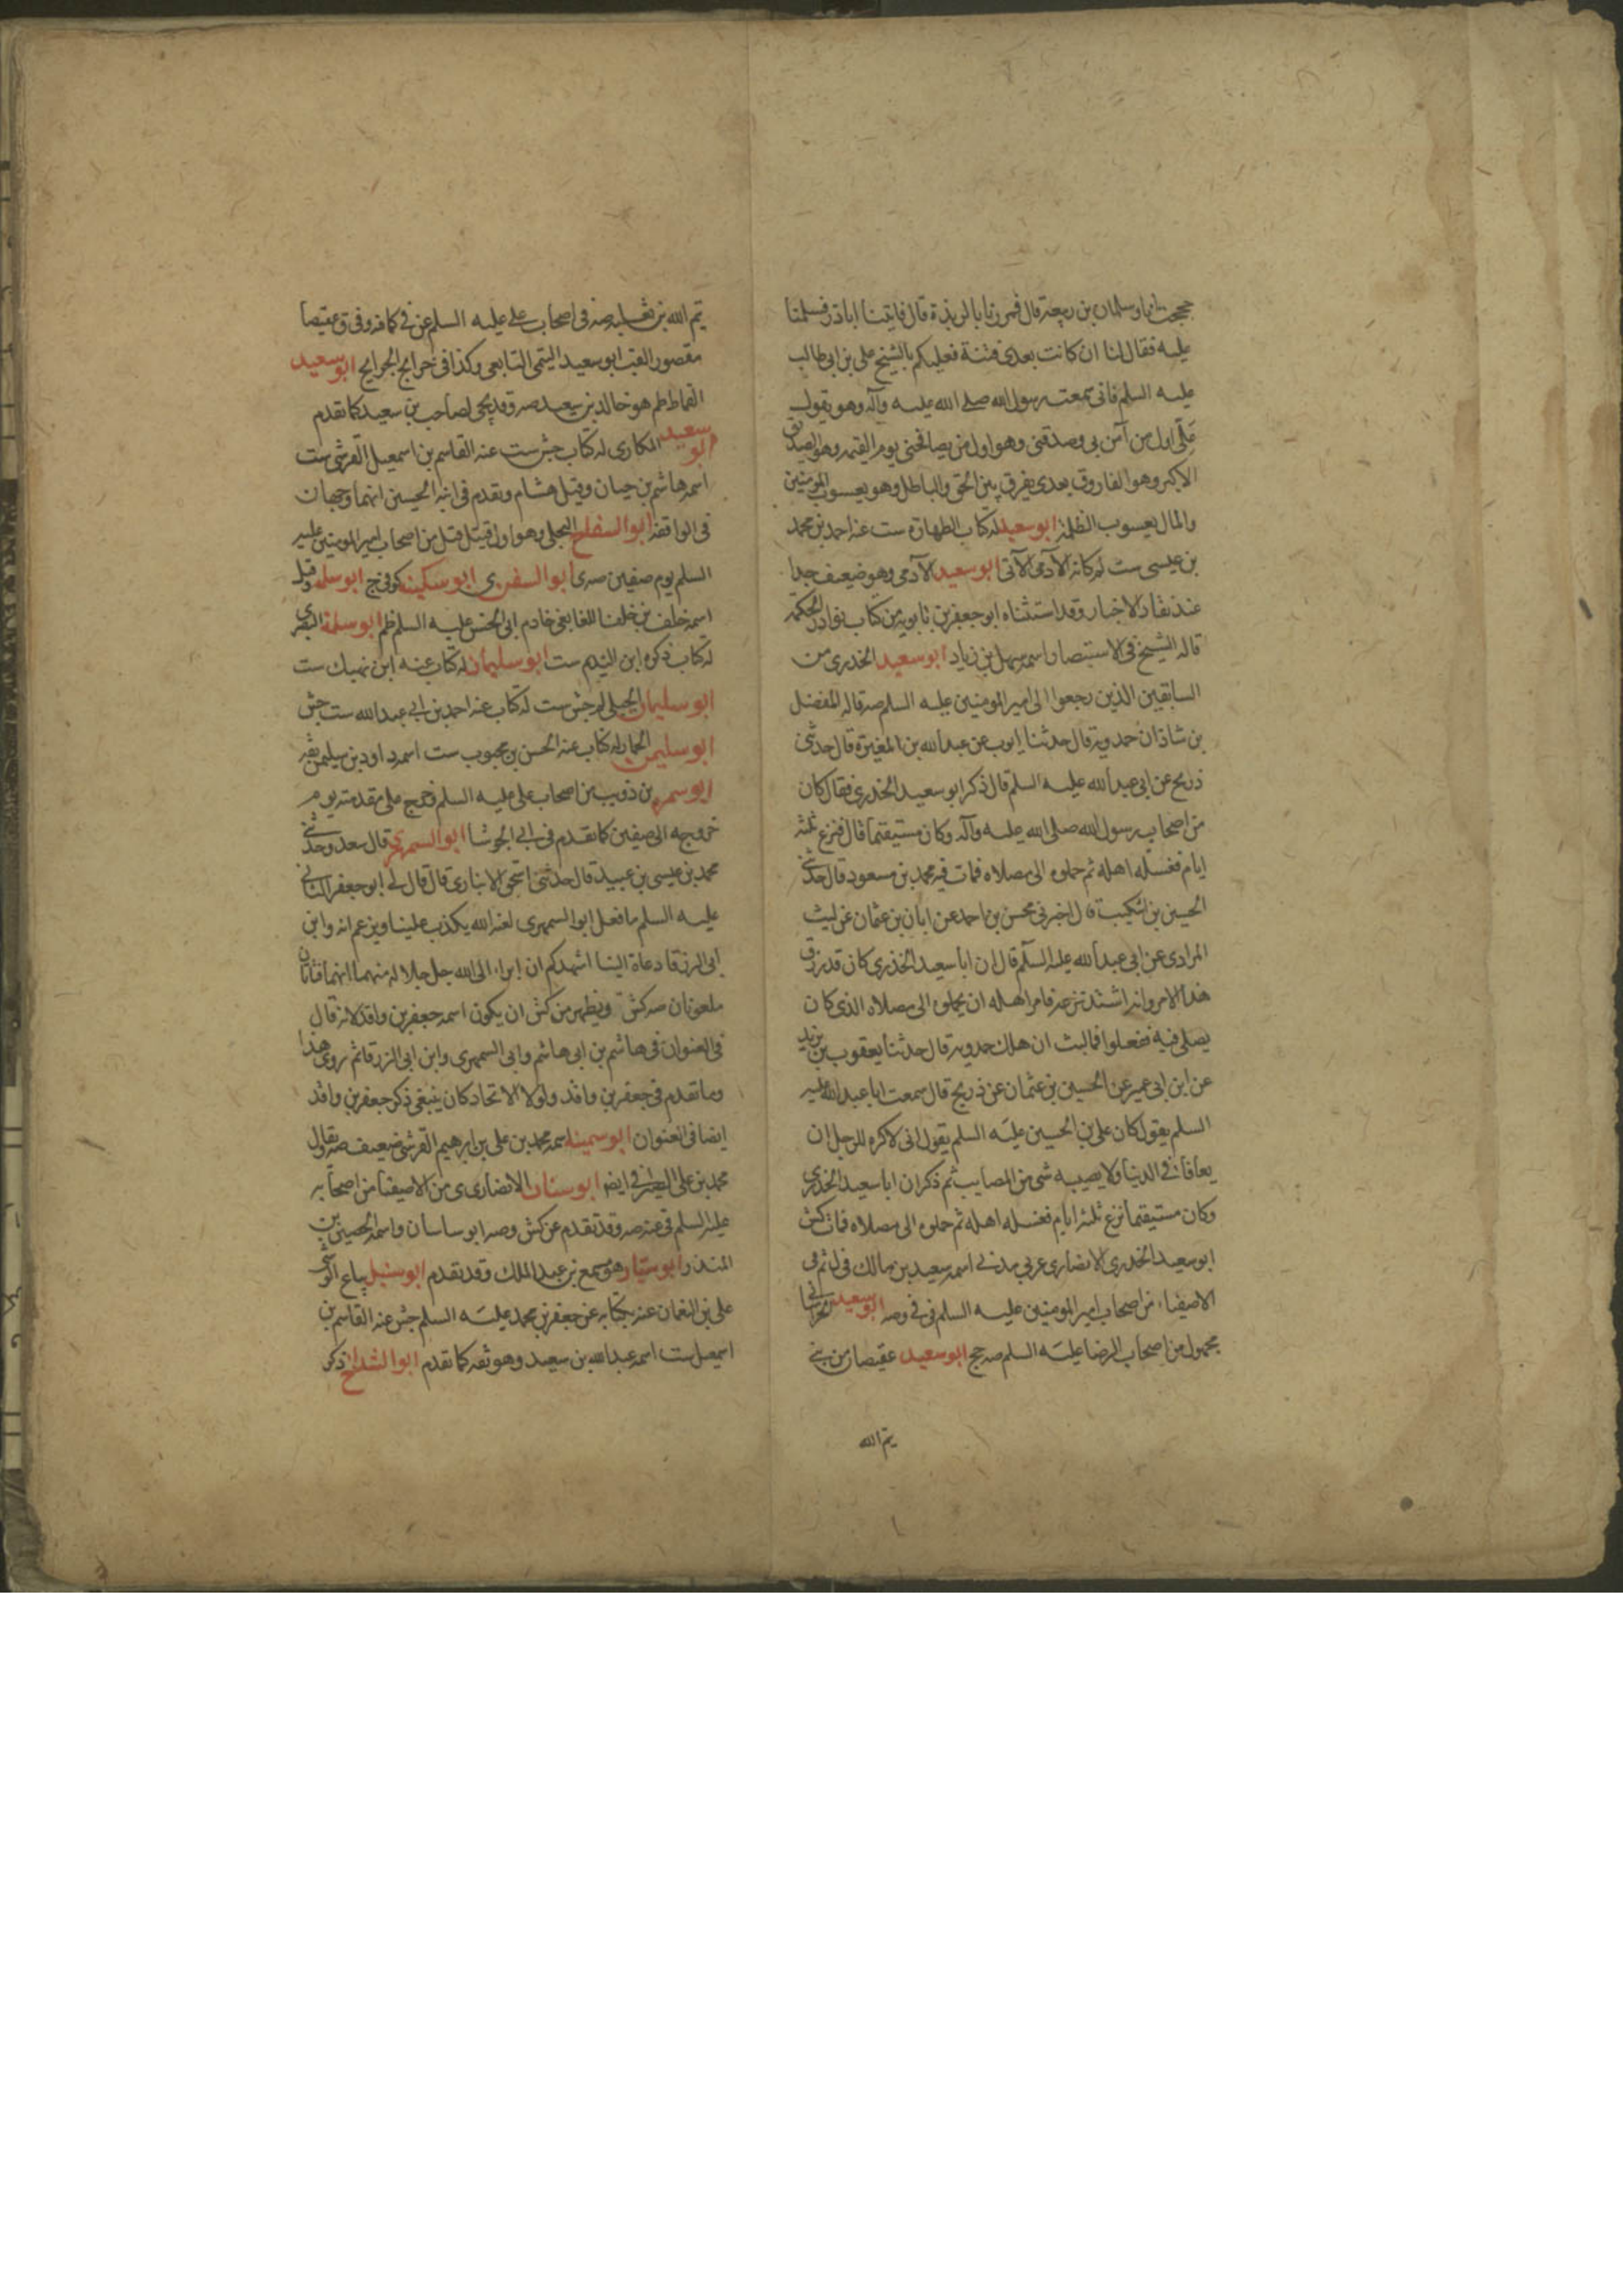 حججت انا وسلمان بن ربيعة قال فمررنا بالربذة قال فاتينا اباذر فسلمنا
عليه فقال لنا ان كانت بعدى فتنة فعليكم بالشيخ على بن ابى طالب
عليه السلم فانى سمعت رسول الله صلى الله عليه وآله وهو يقول
على اول من آمن بى وصدقنى وهو اول من يصافحنى يوم القيمه وهو الصديق
الاكبر وهو الفاروق بعدى يفرق بين الحق والباطل وهو يعسوب المومنين
والمال يعسوب الظلمة ابوسعيد له كتاب الطهارة ست عنه احمد بن محمد
بن عيسى ست لم كانه الآدمى الآتى ابوسعيد الآدمى وهو ضعيف جدا
عند نقاد الاخبار وقد استثناه ابو جعفر بن بابويه من كتاب نوادر الحكمة
قاله الشيخ فى الاستبصار واسمه سهل بن زياد ابوسعيد الخدرى من
السابقين الذين رجعوا الى امير المومنين عليه السلم صه قاله الفضل
بن شاذان حمدويه قال حدثنا ايوب عن عبد الله بن المغيرة قال حدثنى
ذريح عن ابى عبد الله عليه السلم قال ذكر ابو سعيد الخدرى فقال كان
من اصحاب رسول الله صلى الله عليه وآله وكان مستقيما قال فنزع ثلثه
ايام فغسله اهله ثم حملوه الى مصلاه فمات فيه محمد بن مسعود قال حدثنى
الحسين بن اشكيب قال اخبرنى محسن بن احمد عن ابان بن عثمان عن ليث
المرادى عن ابى عبد الله عليه السلم قال ان ابا سعيد الخدرى كان قد رزق
هذا الامر وانه اشتد نزعه فامر اهله ان يحملوه الى مصلاه الذى كان
يصلى فيه ففعلوا فما لبث ان هلك حمدويه قال حدثنا يعقوب بن يزيد
عن ابن ابى عمير عن الحسين بن عثمان عن ذريح قال سمعت ابا عبد الله عليه
السلم يقول كان على بن الحسين عليه السلم يقول انى لاكره للرجل ان
يعافا فى الدنيا ولا يصيبه شى من المصايب ثم ذكر ان ابا سعيد الخدرى
وكان مستقيما نزع ثلثه ايام فغسله اهله ثم حملوه الى مصلاه فمات كش
ابو سعيد الخدرى الانصارى عربى مدنى اسمه سعيد بن مالك فى ل ثم فى
الاصفياء من اصحاب امير المومنين عليه السلم فى ى وصه ابوسعيد الخراسانى
مجهول من اصحاب الرضا عليه السلم صه جخ ابوسعيد عقيصا من بنى
يتم الله
تيم الله بن ثعلبه صه فى اصحاب على عليه السلم عن قى كما فيه وفى ق عقيصا
مقصور القب ابو سعيد التيمى التابعى وكذا فى خرايج الجرايح ابوسعيد
القماط لم هو خالد بن سعيد صه وقد يجى لصاحب بن سعيد كما تقدم
ابوسعيد المكارى له كتاب جش ست عنه القاسم بن اسمعيل القرشى ست
اسمه هاشم بن حيان وقيل هشام وتقدم فى ابنه الحسين انهما وجهان
فى الواقفه ابوالسفلج البجلى وهو اول قتيل قتل من اصحاب امير المومنين عليه
السلم يوم صفين صه ى ابوالسفر ى ابوسكينه كوفى ج ابوسلمه وقيل
اسمه خلف بن خلف اللفايفى خادم ابى الحسن عليه السلم ظم ابوسلمة البصرى
له كتاب ذكره ابن النديم ست ابوسليمان له كتاب عنه ابن نهيك ست
ابوسليمان الجبلى لم جش ست له كتاب عنه احمد بن ابى عبد الله ست جش
ابوسليمن الحمار له كتاب عنه الحسن بن محبوب ست اسمه داود بن سليمن ثقه
ابوسمره بن ذويب من اصحاب على عليه السلم خرج على مقدمته يوم
خروجه الى صفين كما تقدم فى ابى الجوشا ابوالسمهرى قال سعد وحدثنى
محمد بن عيسى بن عبيد قال حدثنى اسحق الانبارى قال قال لى ابو جعفر الثانى
عليه السلم ما فعل ابو السمهرى لعنه الله يكذب علينا ويزعم انه وابن
ابى الزرقا دعاة الينا اشهدكم ان ابراء الى الله جل جلاله منهما انهما فتانان
ملعونان صه كش ويظهر من كش ان يكون اسمه جعفر بن واقد لانه قال
فى العنوان فى هاشم بن ابى هاشم وابى السمهرى وابن ابى الزرقا ثم روى هذا
وما تقدم فى جعفر بن واقد ولولا الاتحاد كان ينبغى ذكر جعفر بن واقد
ايضا فى العنوان ابوسمينه اسمه محمد بن على بن ابرهيم القرشى ضعيف صه تقال
محمد بن على ايض ابوسنان الانصارى ى من الاصفيا من اصحابه
عليه السلم قى عنه صه وقد تقدم عن كش وصه ابو ساسان واسمه الحصين بن
المنذر ابوسيار هو مسمع بن عبد الملك وقد تقدم ابوسنبل بياع الوشى
على بن النعمان عنه بكتابه عن جعفر بن محمد عليه السلم جش عنه القاسم بن
اسمعيل ست اسمه عبد الله بن سعيد وهو ثقه كما تقدم ابوالشداخ ذكر